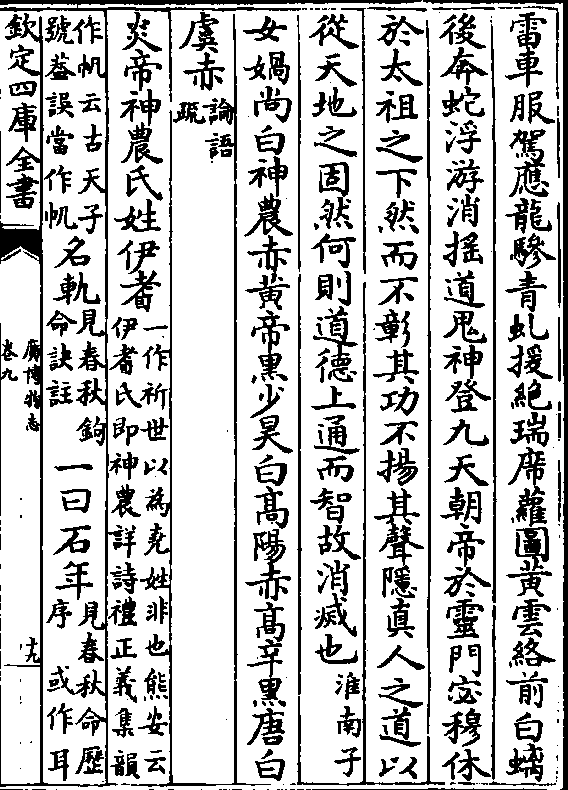 雷車服駕應龍驂青虬援絶瑞席蘿圖黄雲絡前白螭
後奔蛇浮游消揺道鬼神登九天朝帝於靈門宓穆休
於太祖之下然而不彰其功不揚其聲隱真人之道以
從天地之固然何則道徳上通而智故消滅也淮南子
女媧尚白神農赤黄帝黒少昊白高陽赤高辛黒唐白
虞赤論語疏
炎帝神農氏姓伊耆一作祈世以為堯姓非也熊安云伊耆氏即神農詳詩禮正義集韻
作帆云古天子號葢誤當作㠶名軌見春秋鉤命訣註一曰石年見春秋命歴序或作耳
欽定四庫全書
廣博物志
卷九
十九